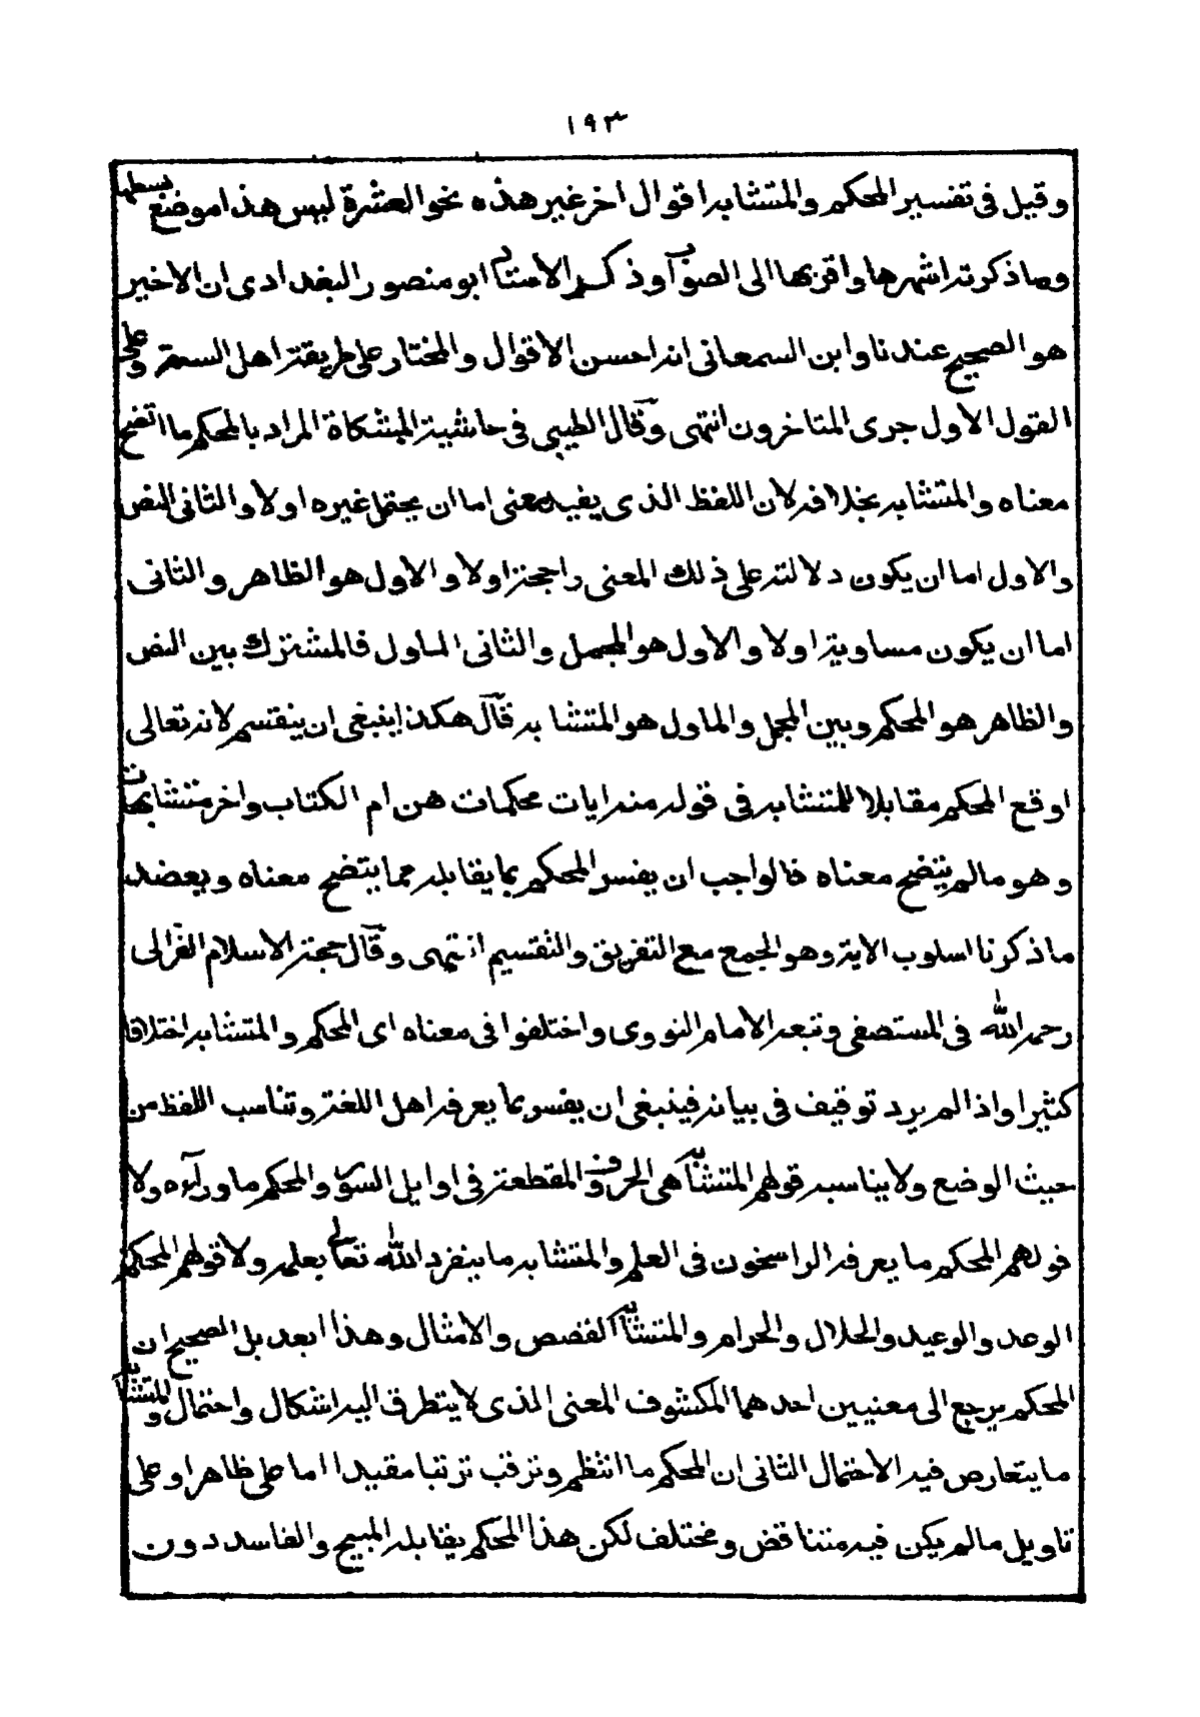 ١٩٣
وقيل في تفسير المحكم والمتشابه اقوال اخر غير هذه نحو العشرة ليس هذا موضع بسطها
وما ذكرته اشهرها واقربها الى الصواب وذكر الاستاذ ابو منصور البغدادى ان الاخير
هو الصحيح عندنا وابن السمعانى انه احسن الاقوال والمختار على طريقة اهل السنة وعلى
القول الاول جرى المتاخرون انتهى وقال الطيبى فى حاشية المشكاة المراد بالمحكم ما اتضح
معناه والمتشابه بخلافه لان اللفظ الذى يفيد معنى اما ان يحتمل غيره اولا والثانى النص
والاول اما ان يكون دلالته على ذلك المعنى راجحة اولا والاول هو الظاهر والثانى
اما ان يكون مساوية اولا والاول هو المجمل والثانى الماول فالمشترك بين النص
والظاهر هو المحكم وبين المجمل والماول هو المتشابه قال هكذا ينبغى ان ينقسم لانه تعالى
اوقع المحكم مقابلا للمتشابه فى قوله منه ايات محكمات هن ام الكتاب واخر متشابهات
وهو مالم يتضح معناه فالواجب ان يفسر المحكم بما يقابله مما يتضح معناه ويعضد
ما ذكرنا اسلوب الاية وهو الجمع مع التفريق والتقسيم انتهى وقال حجة الاسلام الغزالى
رحمه الله فى المستصفى وتبعه الامام النووى واختلفوا فى معناه اى المحكم والمتشابه اختلافا
كثيرا واذا لم يرد توقيف فى بيانه فينبغى ان يفسر بما يعرفه اهل اللغة وتناسب اللفظ من
حيث الوضع ولا يناسبه قولهم المتشابه هى الحروف المقطعة فى اوايل السور والمحكم ما ورآءه ولا
قولهم المحكم ما يعرفه الراسخون فى العلم والمتشابه ما ينفرد الله تعالى بعلمه ولا قولهم المحكم
الوعد والوعيد والحلال والحرام والمتشابه القصص والامثال وهذا ابعد بل الصحيح ان
المحكم يرجع الى معنيين احدهما المكشوف المعنى الذى لا يتطرق اليه اشكال واحتمال والمتشابه
ما يتعارض فيه الاحتمال الثانى ان المحكم ما انتظم وترتب ترتبا مقيدا اما على ظاهر او على
تاويل ما لم يكن فيه متناقض ومختلف لكن هذا المحكم يقابله المبيح والفاسد دون